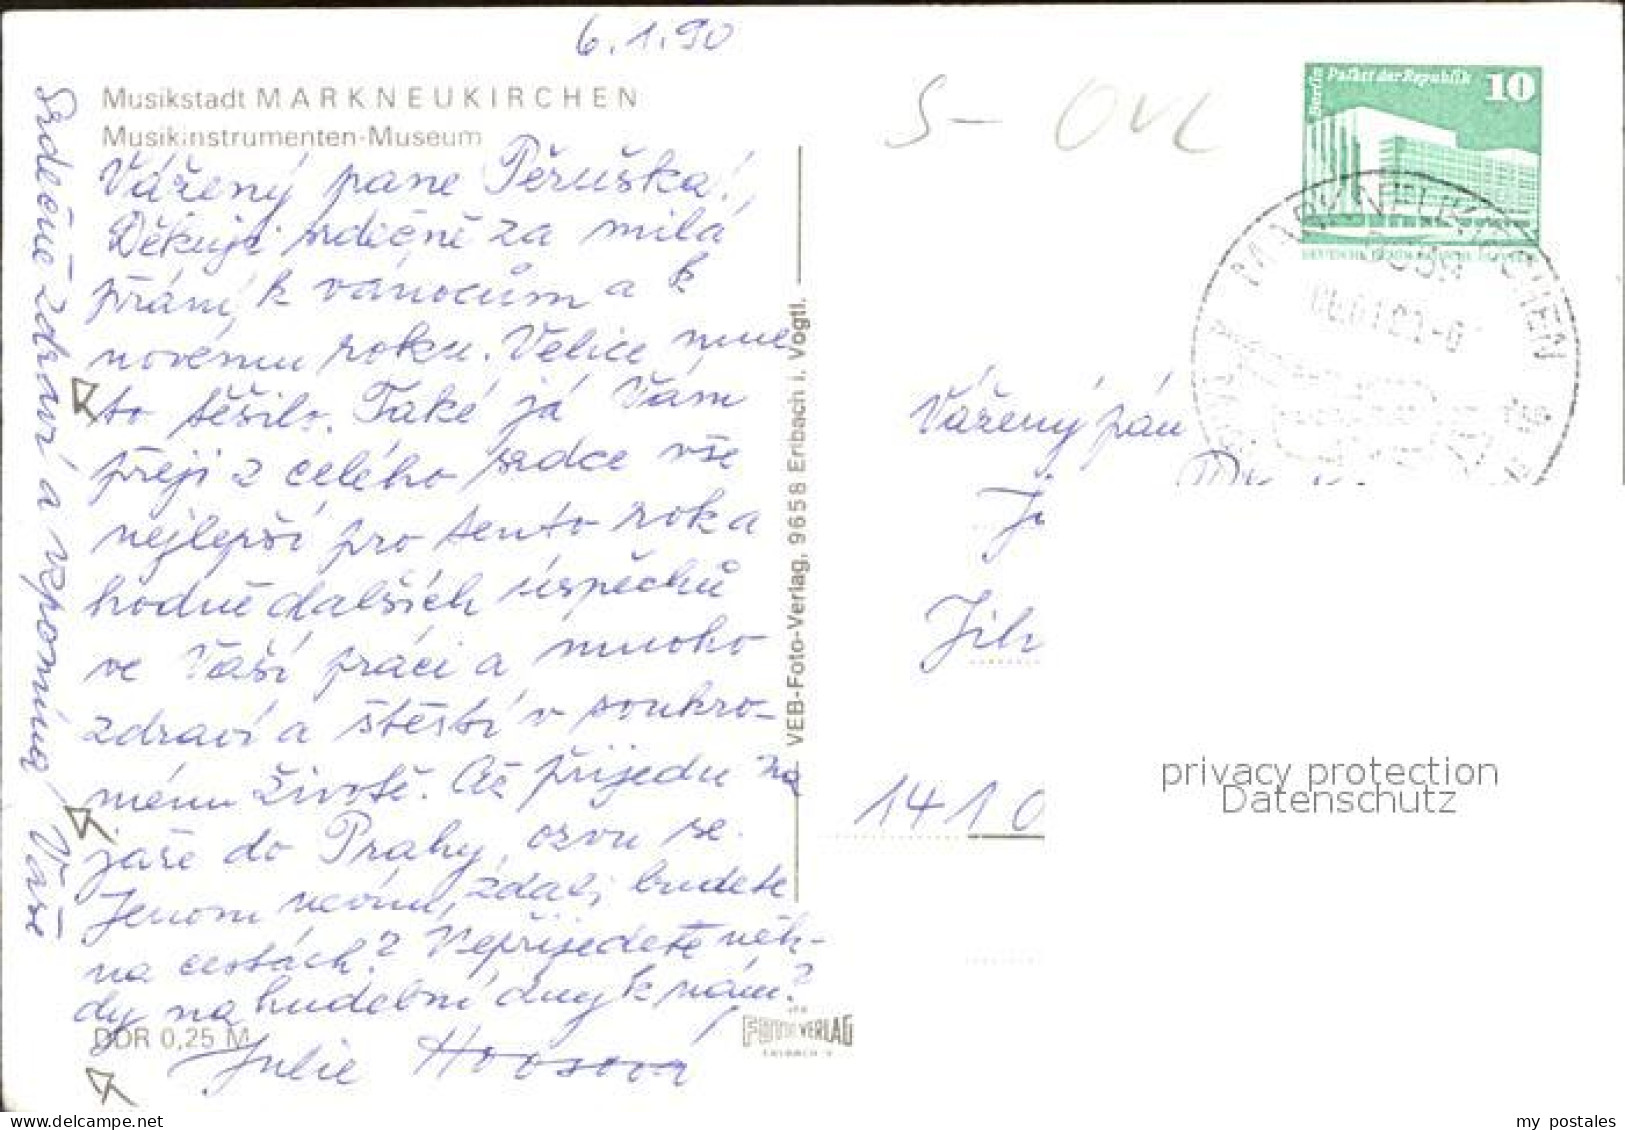 6.1.90
Musikstadt MARKNEUKIRCHEN
Musikinstrumenten-Museum
Vážený pane Pěruška!
Děkuji srdičně za milá
přání k vánocům a k
novému roku. Velice mne
to těšilo. Také já Vám
přeji z celého srdce vše
nejlepší pro tento rok a
hodně dalších úspěchů
ve Vaší práci a mnoho
zdraví a štěstí v soukro-
mému životě. Až přijedu na
jaře do Prahy, ozvu se.
Jenom nevím, zdali budete
na cestách? Nepřijedete něk-
dy na hudební dny k nám?
Julie
Srdečně zdraví a vzpomíná Vaše
DDR 0,25 M
VEB-Foto-Verlag, 9658 Erlbach i. Vogtl.
FOTO VERLAG
ERLBACH V.
S- OVL
Berlin Palast der Republik 10
MARKNEUKIRCHEN
Vážený pán
Jih
1410
privacy protection
Datenschutz
my postales